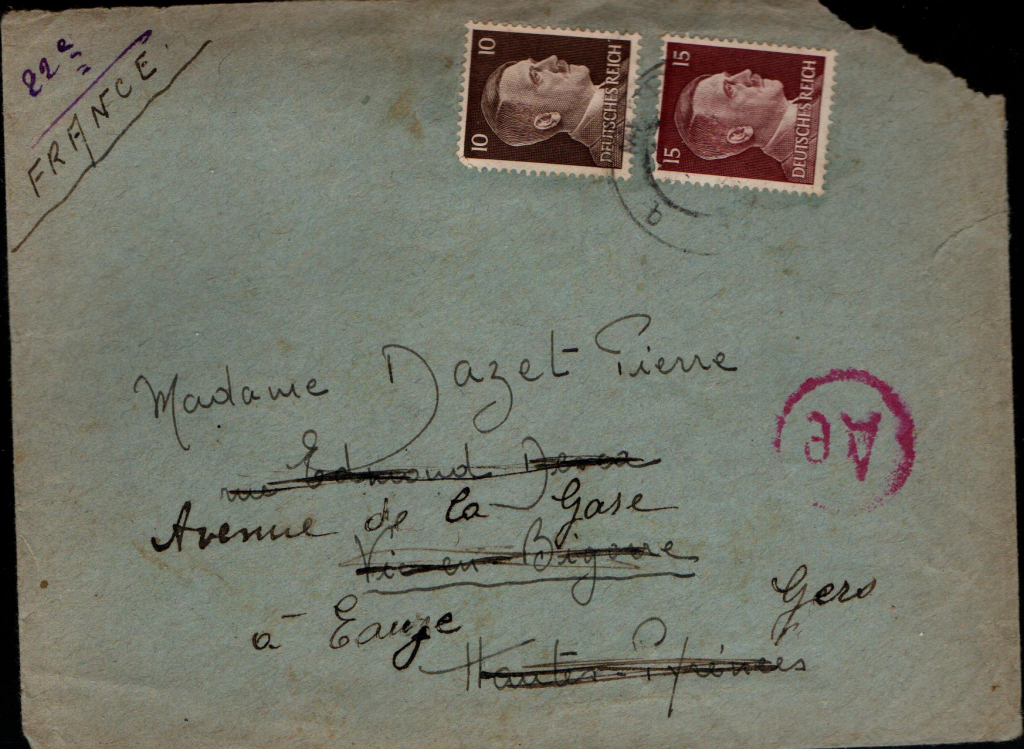 22e
FRANCE.
10 10 DEUTSCHES REICH
15 15 DEUTSCHES REICH
Madame Dazet Pierre
rue Edmond
Avenue de la Gare
Vic en Bigorre
à Eauze
Gers
Hautes-Pyrénées
Ae